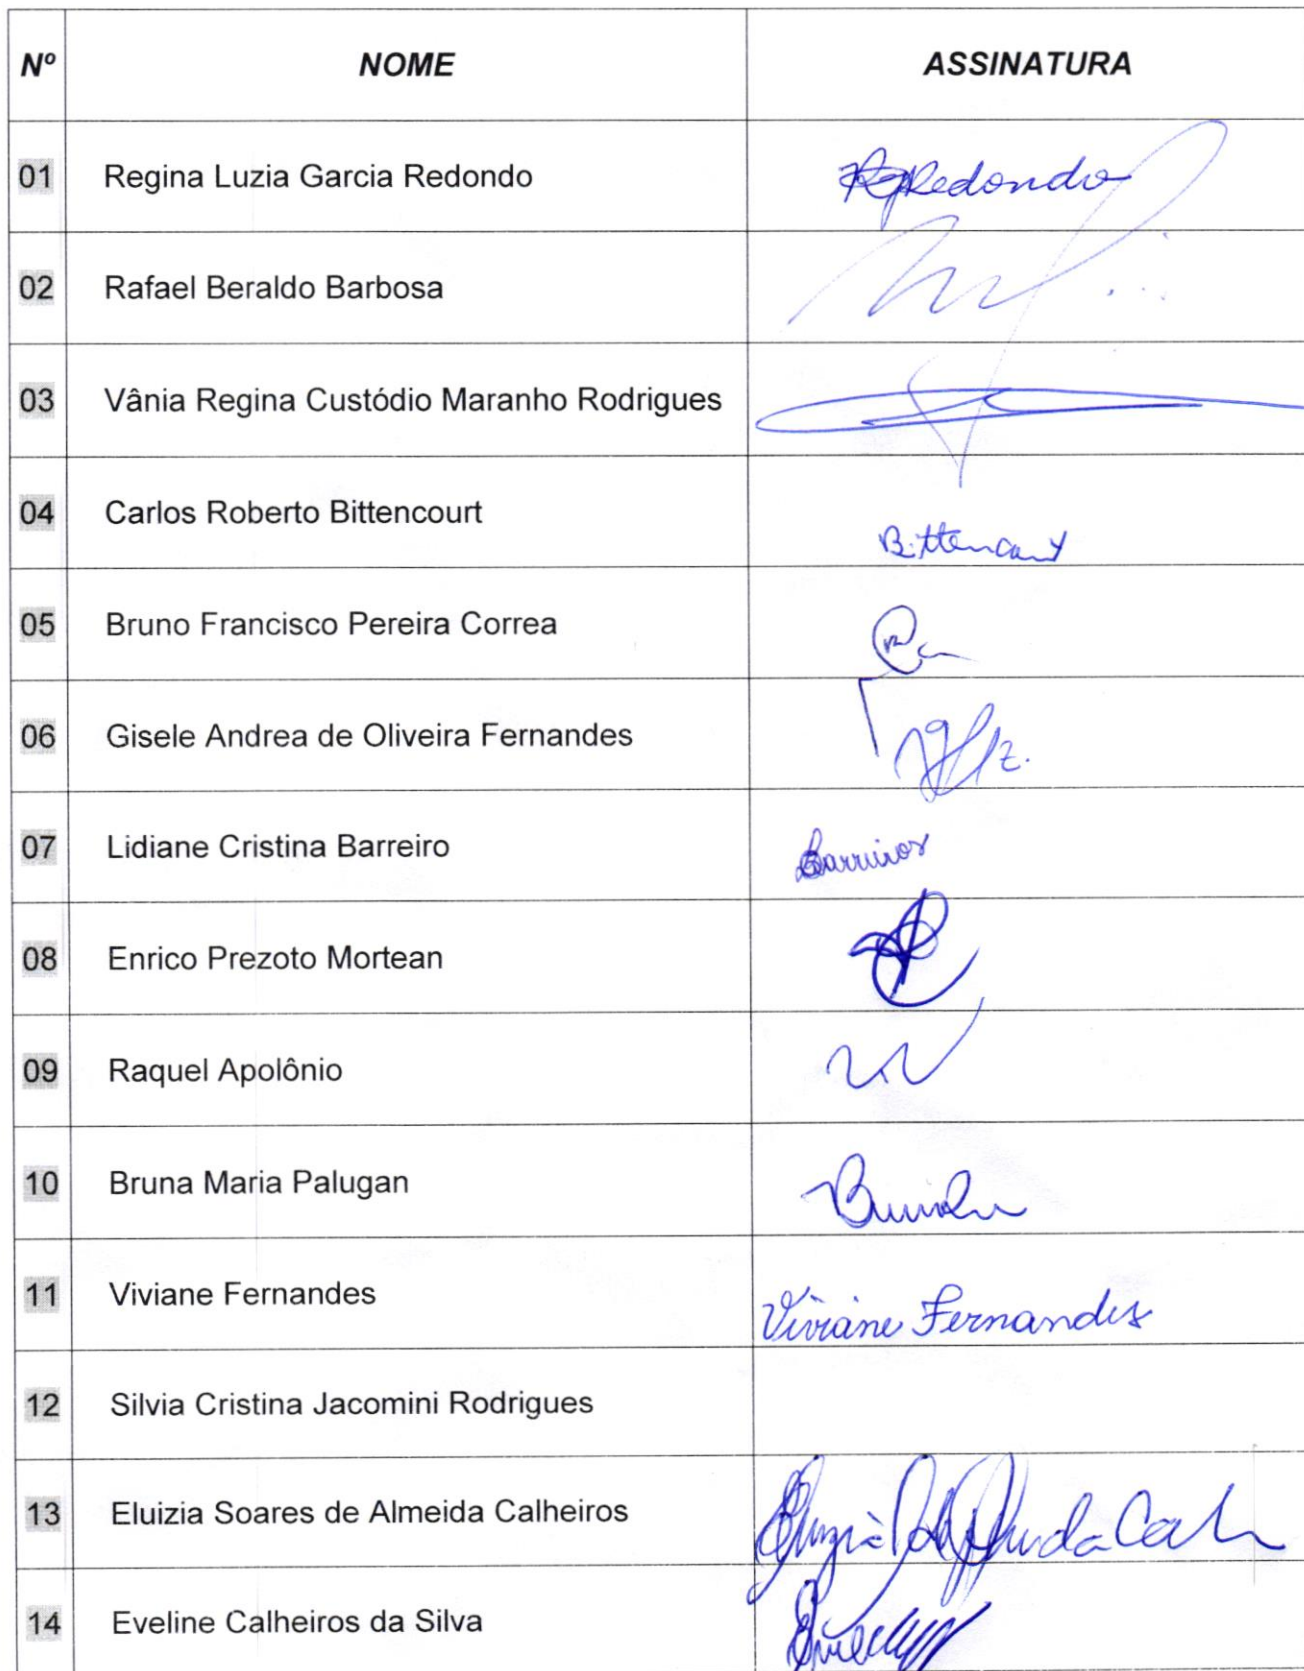 Nº NOME ASSINATURA
01 Regina Luzia Garcia Redondo Redondo
02 Rafael Beraldo Barbosa
03 Vânia Regina Custódio Maranho Rodrigues
04 Carlos Roberto Bittencourt Bittencourt
05 Bruno Francisco Pereira Correa
06 Gisele Andrea de Oliveira Fernandes
07 Lidiane Cristina Barreiro
08 Enrico Prezoto Mortean
09 Raquel Apolônio
10 Bruna Maria Palugan
11 Viviane Fernandes Viviane Fernandes
12 Silvia Cristina Jacomini Rodrigues
13 Eluizia Soares de Almeida Calheiros
14 Eveline Calheiros da Silva